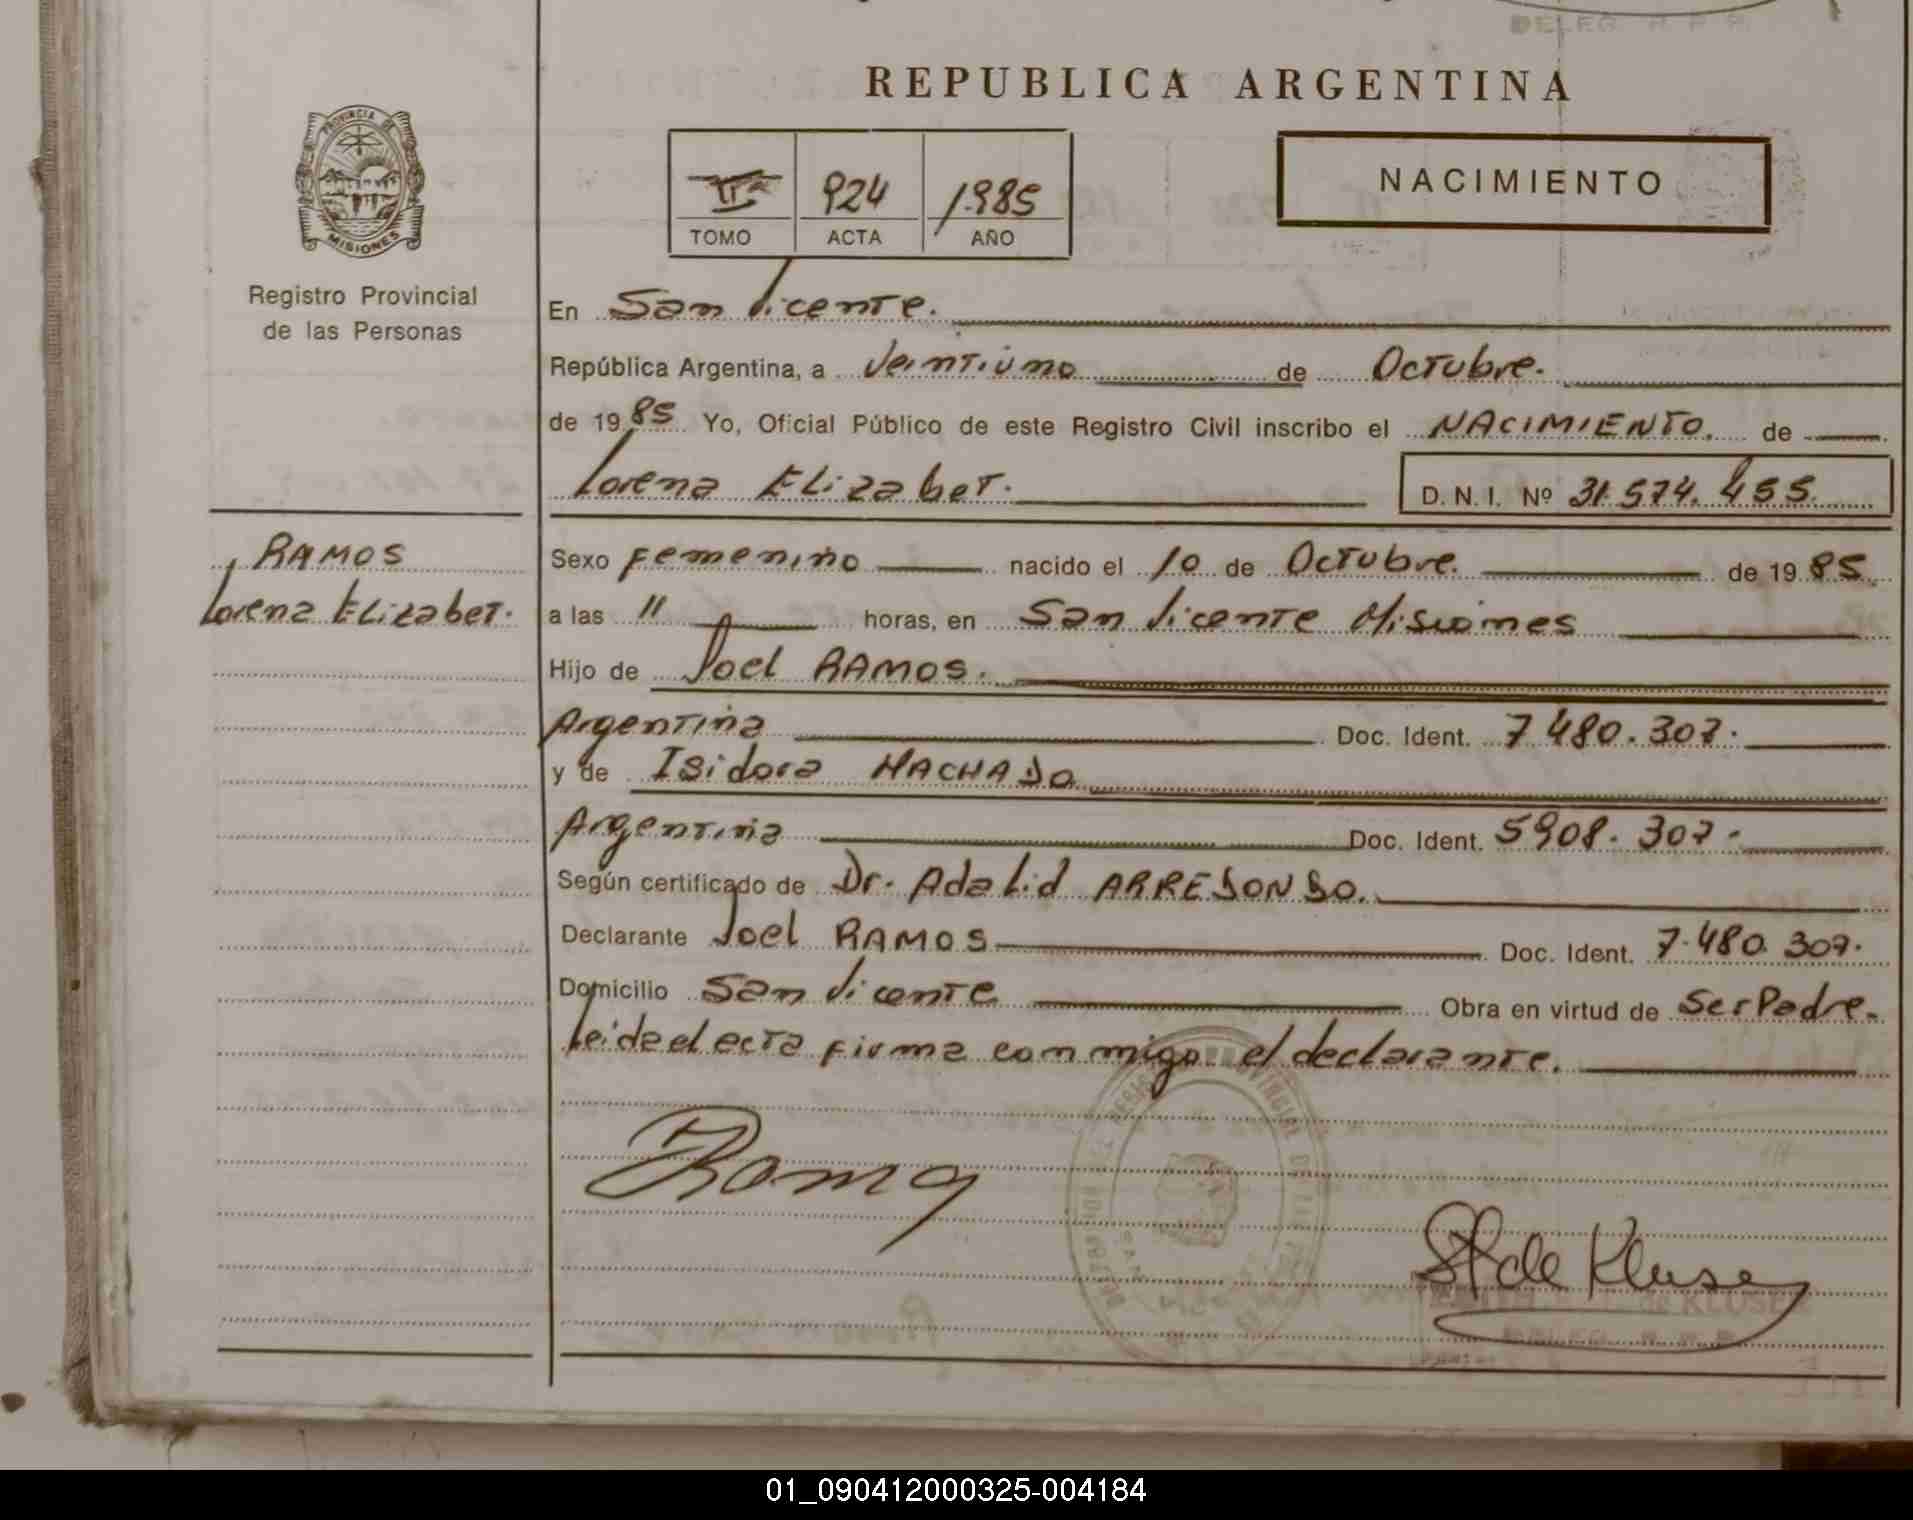 DELEG. R. P. P.
REPUBLICA ARGENTINA
PROVINCIA DE
MISIONES
Registro Provincial
de las Personas
924 1.985
TOMO ACTA AÑO
NACIMIENTO
En San Vicente.
República Argentina, a Veintiuno de Octubre.
de 19 85 Yo, Oficial Público de este Registro Civil inscribo el NACIMIENTO. de
Lorena ELizabet. D. N. I. Nº 31.574.455
RAMOS
Lorena ELizabet.
Sexo Femenino nacido el 10 de Octubre. de 19 85.
a las 11 horas, en San Vicente Misiones
Hijo de Joel RAMOS.
Argentina Doc. Ident. 7.480.307.
y de Isidora MACHADO
Argentina Doc. Ident. 5908.307.
Según certificado de Dr. Adalid ARREDONDO.
Declarante Joel RAMOS Doc. Ident. 7.480.307.
Domicilio San Vicente Obra en virtud de Ser Padre.
Leida el acta firma conmigo el declarante.
de KLUSE
DELEG. R. P. P.
01_090412000325-004184